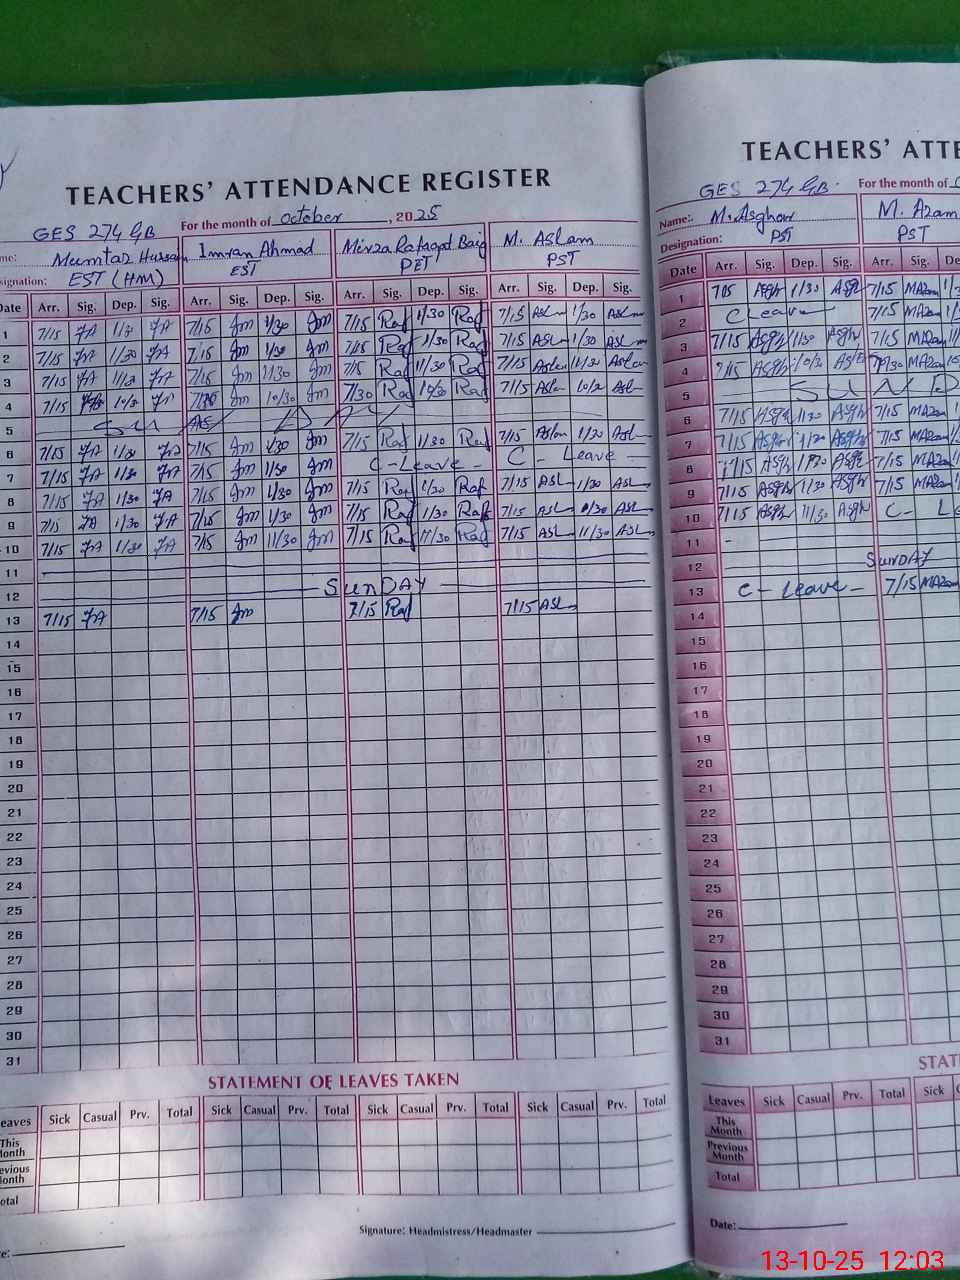 TEACHERS' ATTENDANCE REGISTER
GES 274 GB For the month of October, 2025
me: Mumtaz Hussain Imran Ahmad Mirza Rafaqat Baig M. Aslam
signation: EST (HM) EST PET PST
Date Arr. Sig. Dep. Sig. Arr. Sig. Dep. Sig. Arr. Sig. Dep. Sig. Arr. Sig. Dep. Sig.
1 7/15 FA 1/30 FA 7/15 Jm 1/30 Jm 7/15 Raf 1/30 Raf 7/15 ASLm 1/30 ASLm
2 7/15 FA 1/30 FA 7/15 Jm 1/30 Jm 7/15 Raf 1/30 Raf 7/15 ASLm 1/30 ASLm
3 7/15 FA 11/30 FA 7/15 Jm 11/30 Jm 7/15 Raf 11/30 Raf 7/15 Aslam 11/30 Aslam
4 7/15 10/30 7/15 Jm 10/30 Jm 7/30 Raf 10/30 Raf 7/15 Aslm
5 SUNDAY
6 7/15 FA 1/30 FA 7/15 Jm 1/30 Jm 7/15 Raf 1/30 Raf 7/15 Aslam 1/30 ASL
7 7/15 FA 1/30 FA 7/15 Jm 1/30 Jm C-Leave - C - Leave -
8 7/15 FA 1/30 FA 7/15 Jm 1/30 Jm 7/15 Raf 1/30 Raf 7/15 ASL 1/30 ASL
9 7/15 FA 1/30 FA 7/15 Jm 1/30 Jm 7/15 Raf 1/30 Raf 7/15 ASL 1/30 ASL
10 7/15 FA 1/30 FA 7/15 Jm 11/30 Jm 7/15 Raf 11/30 Raf 7/15 ASL 11/30 ASL
11
12 SUNDAY
13 7/15 FA 7/15 Jm 7/15 Raf 7/15 ASL
14
15
16
17
18
19
20
21
22
23
24
25
26
27
28
29
30
31
STATEMENT OF LEAVES TAKEN
eaves Sick Casual Prv. Total Sick Casual Prv. Total Sick Casual Prv. Total Sick Casual Prv. Total
This
Month
evious
Month
otal
Signature: Headmistress/Headmaster
e:
TEACHERS' ATTE
GES 274 GB. For the month of
Name: M. Asghar M. Azam
Designation: PST PST
Date Arr. Sig. Dep. Sig. Arr. Sig. De
1 Asgh 1/30 Asgh 7/15 MAzam
2 C Leave 7/15 MAzam
3 7/15 Asgh 1/30 Asgh 7/15 MAzam
4 7/15 Asgh Asgh 7/30 MAzam
5 SUND
6 7/15 Asgh 1/30 Asgh 7/15 MAzam
7 7/15 Asgh 1/30 Asgh 7/15 MAzam
8 7/15 Asgh 1/30 Asgh 7/15 MAzam
9 7/15 Asgh 1/30 Asgh 7/15 MAzam
10 7/15 Asgh 11/30 Asgh C- Le
11
12 SUNDAY
13 C - Leave - 7/15 MAzam
14
15
16
17
18
19
20
21
22
23
24
25
26
27
28
29
30
31
STAT
Leaves Sick Casual Prv. Total Sick
This
Month
Previous
Month
Total
Date:
13-10-25 12:03